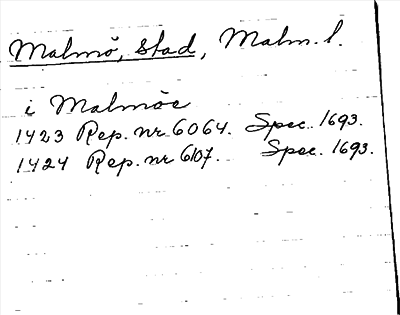 Malmö, stad, Malm. l.
i Malmöe
1423 Rep. nr 6064. Spec. 1693.
1424 Rep. nr 6107. Spec. 1693.